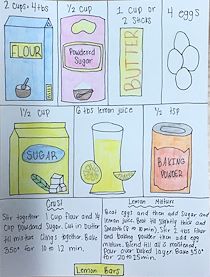 2 cups + 4 tbs
½ cup
1 cup or
2 sticks
4 eggs
FLOUR
Powdered
Sugar
BUTTER
1½ cup
6 tbs lemon juice
½ tsp
SUGAR
BAKING
POWDER
Crust
Stir together 1 cup flour and ½
cup powdered sugar. Cut in butter
till mixture clings together. Bake
350° for 10 to 12 min.
Lemon Mixture
Beat eggs and then add sugar and
lemon juice. Beat till slightly thick and
smooth (8 to 10 min). Stir 2 tbs flour
and baking powder then add egg
mixture. Blend till all is moistened.
Pour over baked layer. Bake 350°
for 20 to 25 min.
Lemon Bars